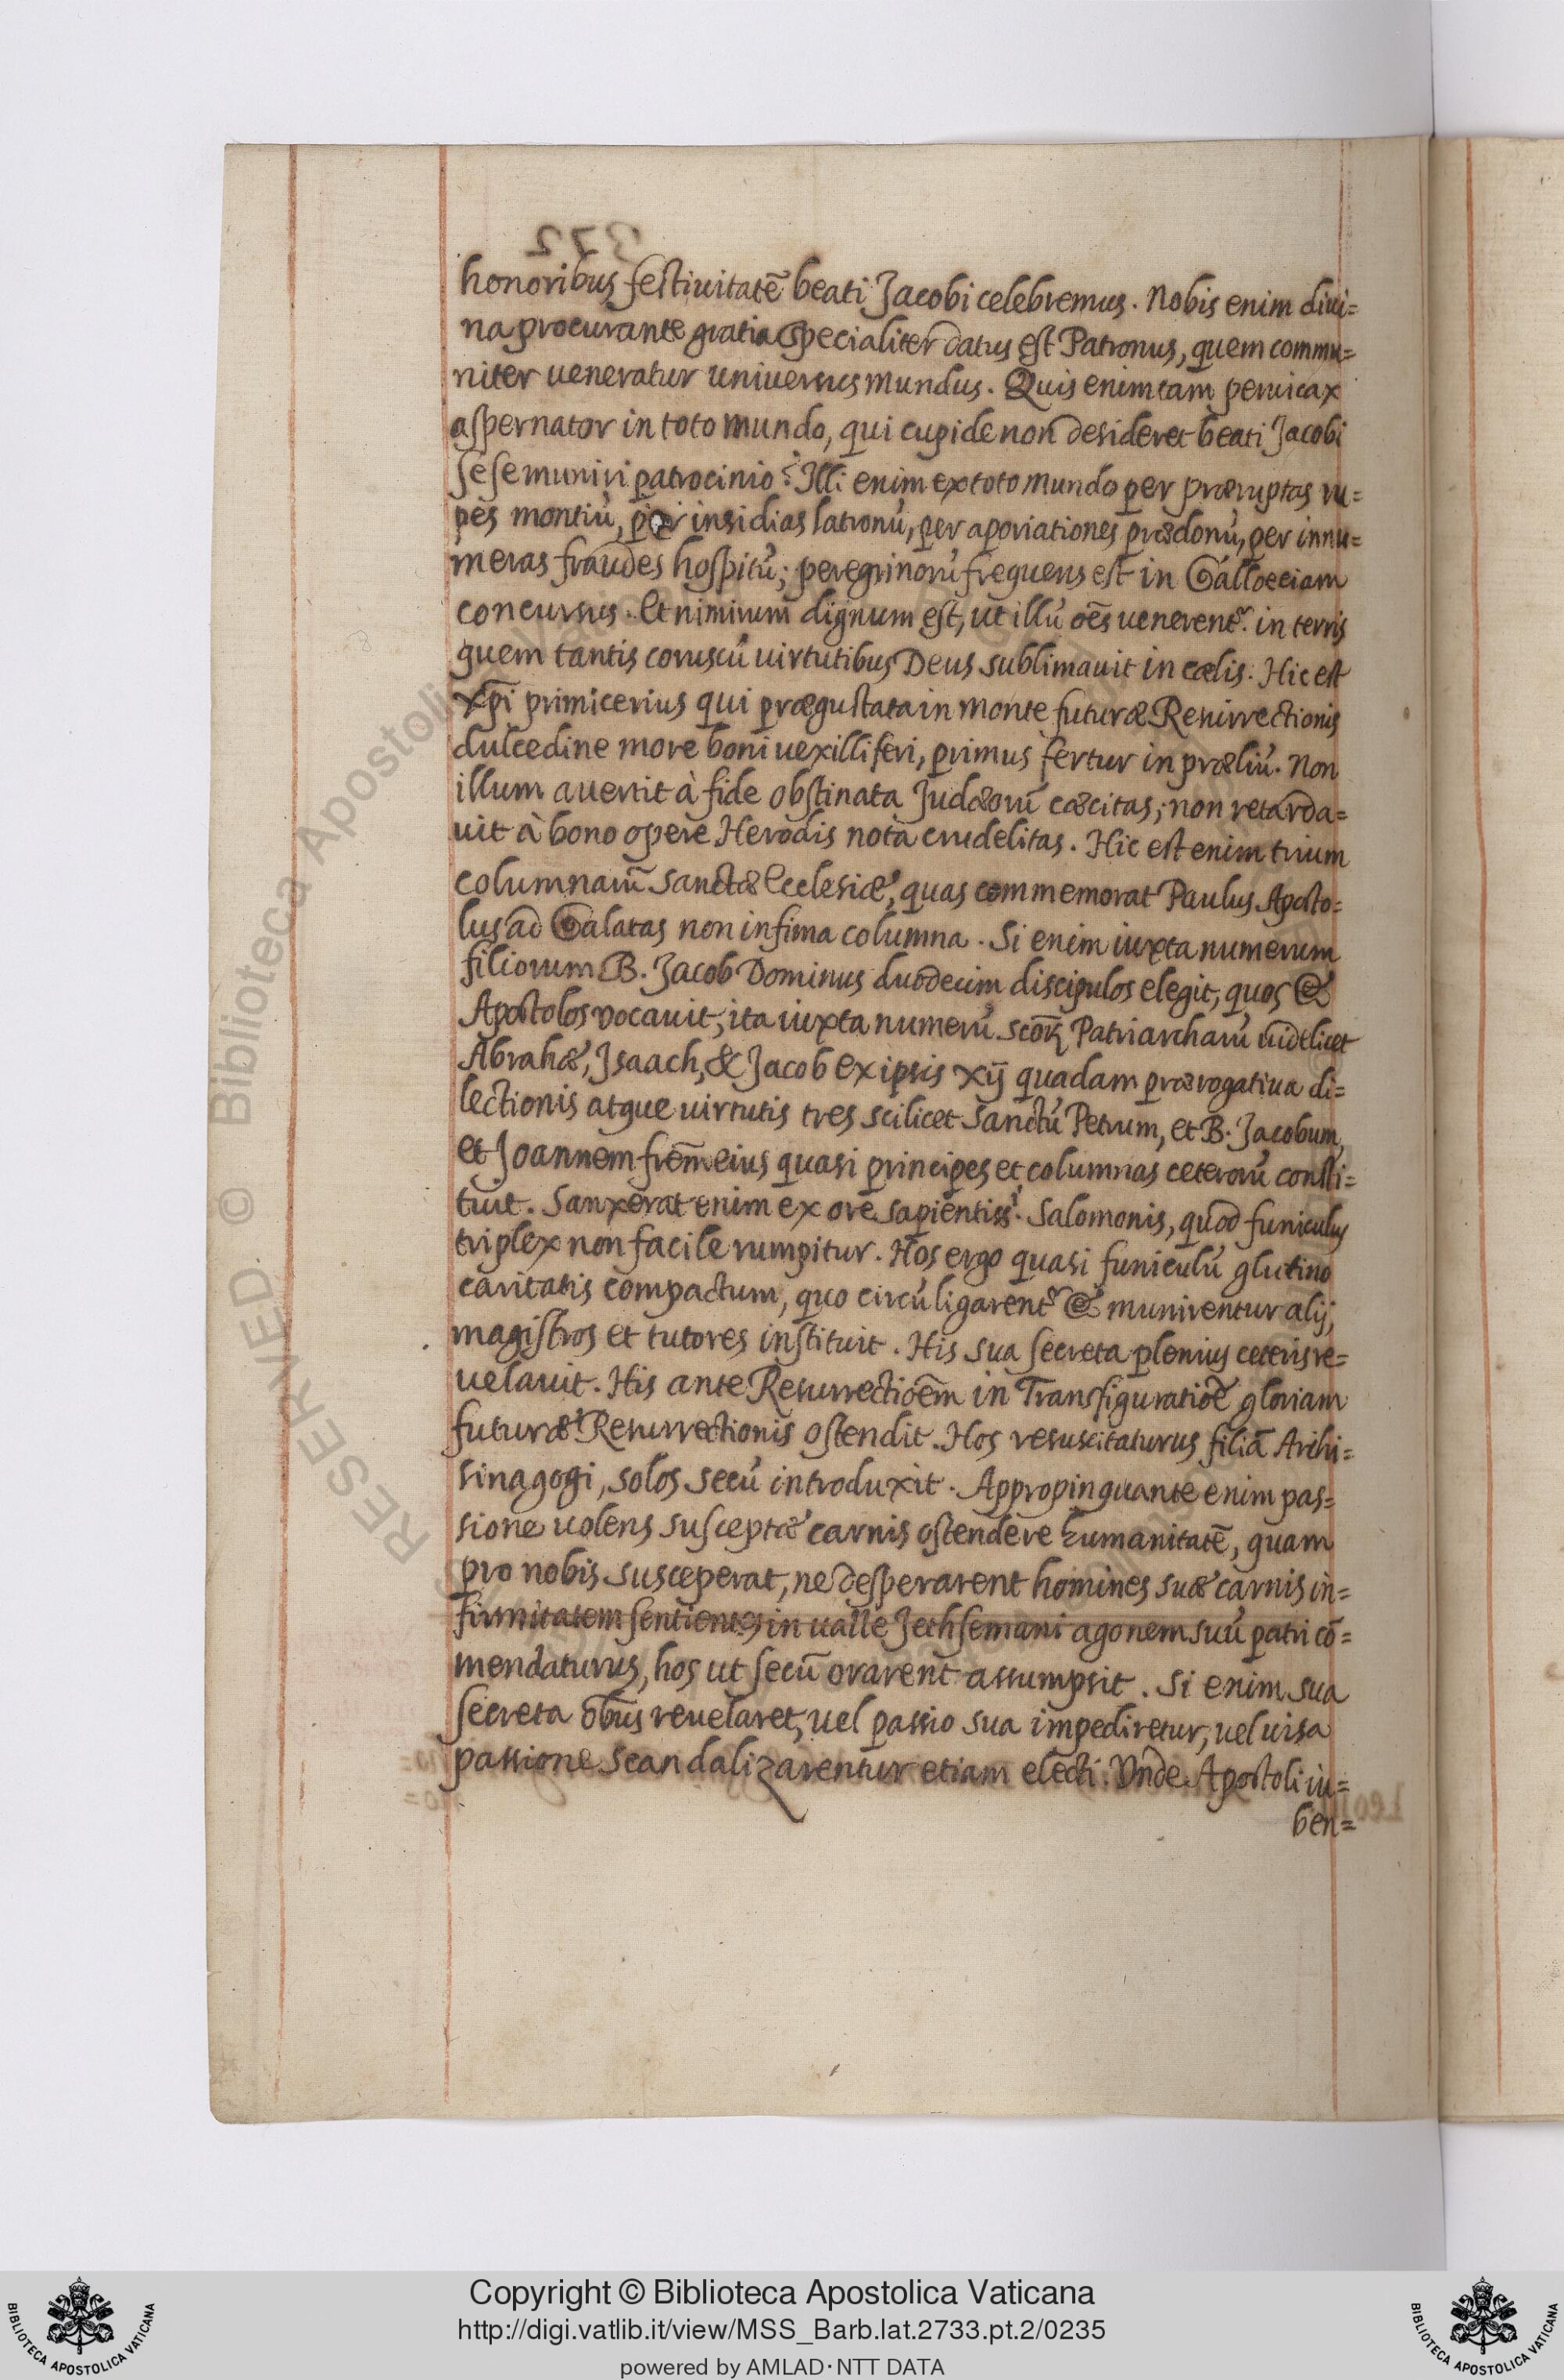 honoribus festiuitatē beati Jacobi celebremus. Nobis enim diui=
na procurante gratia specialiter datus est Patronus, quem commu=
niter ueneratur uniuersus mundus. Quis enim tam peruicax
aspernator in toto mundo, qui cupide non desideret beati Jacobi
sese muniri patrocinio? Illi enim ex toto mundo per præruptas ru=
pes montiū, per insidias latronū, per aporiationes prædonū, per innu=
meras fraudes hospitū; peregrinorū frequens est in Galloeciam
concursus. Et nimirum dignum est, ut illū oēs uenerentr. in terris
quem tantis coruscū uirtutibus Deus sublimauit in cælis. Hic est
Xp̄i primicerius qui prægustata in monte futuræ Resurrectionis
dulcedine more boni uexilliferi, primus fertur in præliū. Non
illum auertit à fide obstinata Judæorū cæcitas; non retarda=
uit à bono opere Herodis nota crudelitas. Hic est enim trium
columnarū Sanctæ Ecclesiæ, quas commemorat Paulus Aposto=
lus ad Galatas non infima columna. Si enim iuxta numerum
filiorum B. Jacob Dominus duodecim discipulos elegit, quos &
Apostolos vocauit, ita iuxta numerū scōꝝ Patriarcharū uidelicet
Abrahæ, Isaach, & Jacob ex ipsis xij quadam prærogatiua di=
lectionis atque uirtutis tres scilicet Sanctū Petrum, et B. Jacobum,
et Joannem frēm eius quasi principes et columnas ceterorū consti=
tuit. Sanxerat enim ex ore sapientissi. Salomonis, quod funiculus
triplex non facile rumpitur. Hos ergo quasi funiculū glutino
caritatis compactum, quo circūligarentr & munirentur alij,
magistros et tutores instituit. His sua secreta plenius ceteris re=
uelauit. His ante Resurrectiōem in Transfiguratiōe gloriam
futuræ Resurrectionis ostendit. Hos resuscitaturus filiā Archi=
sinagogi, solos secū introduxit. Appropinquante enim pas=
sione uolens susceptæ carnis ostendere humanitatē, quam
pro nobis susceperat, ne desperarent homines suæ carnis in=
firmitatem sentientes in ualle Jethsemani agonem suū patri cō=
mendaturus, hos ut secū orarent assumpsit. Si enim sua
secreta oībus reuelaret, uel passio sua impediretur, uel uisa
passione scandalizarentur etiam electi. Vnde Apostoli iu=
ben=
RESERVED. © Biblioteca Apostolica Vaticana
Copyright © Biblioteca Apostolica Vaticana
http://digi.vatlib.it/view/MSS_Barb.lat.2733.pt.2/0235
powered by AMLAD·NTT DATA
BIBLIOTECA APOSTOLICA VATICANA
BIBLIOTECA APOSTOLICA VATICANA